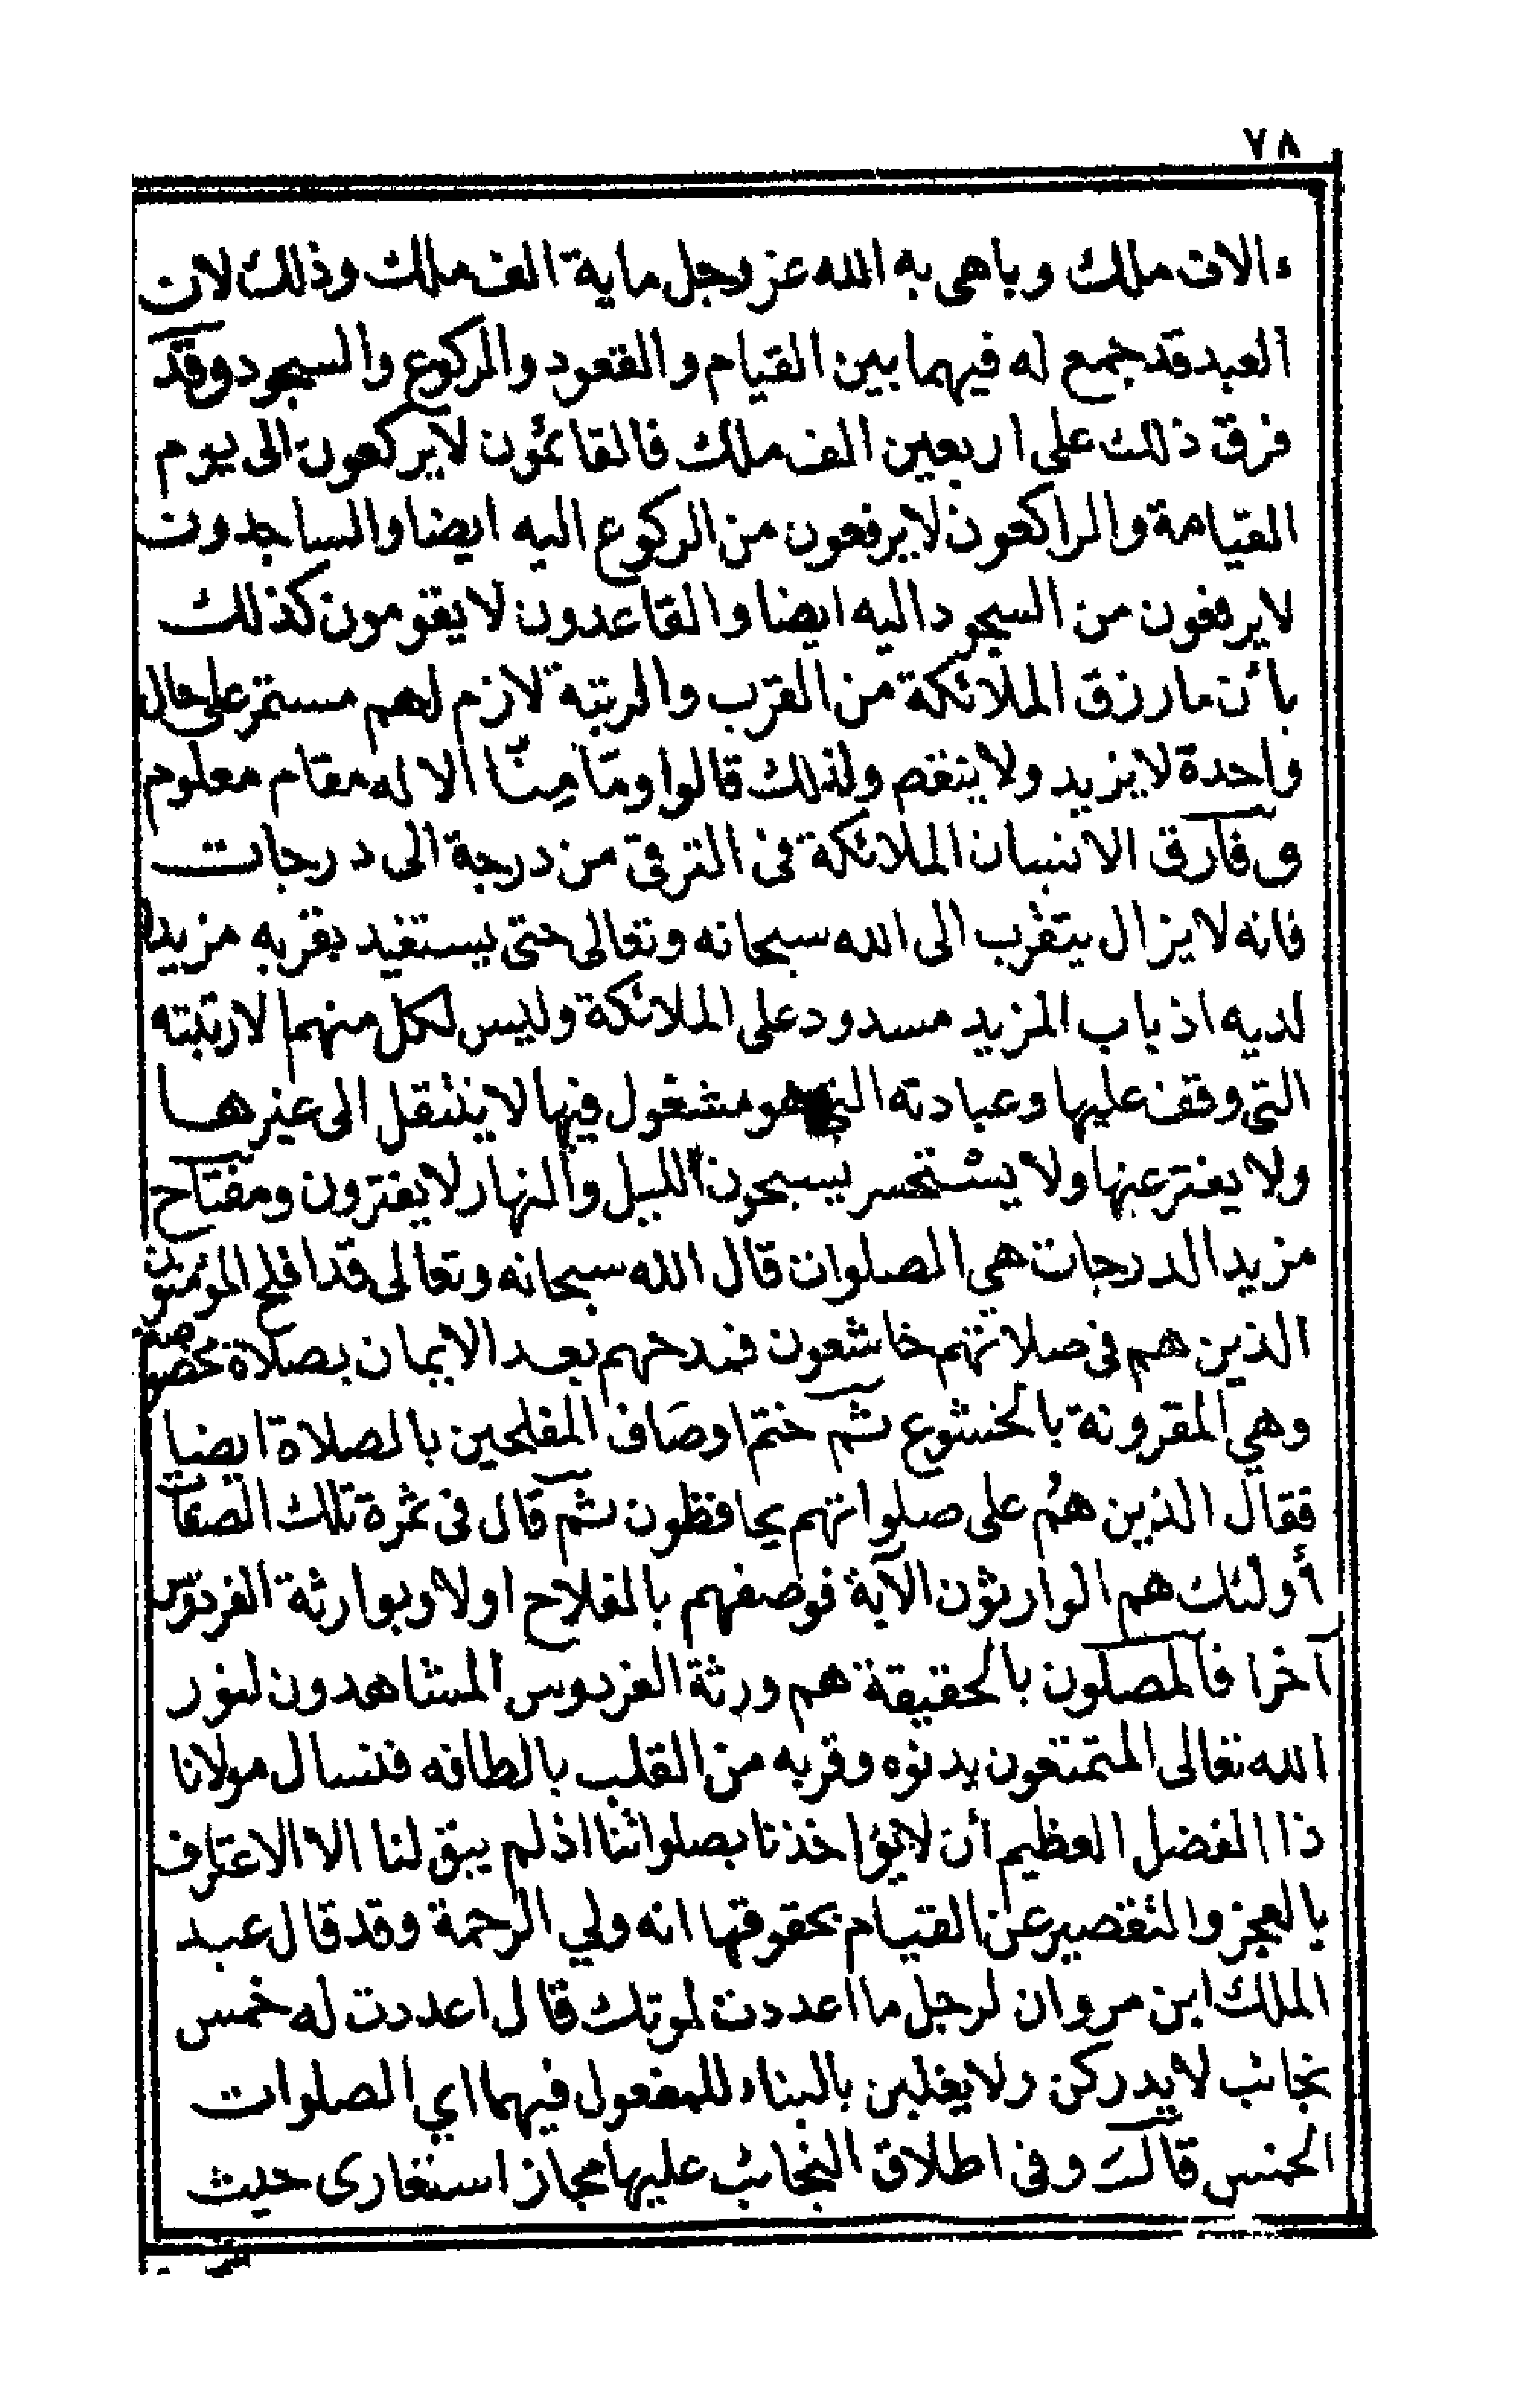 ٧٨
ءالاف ملك وباهى به الله عز وجل ماية الف ملك وذلك لان
العبد قد جمع له فيهما بين القيام والقعود والركوع والسجود وقد
فرق ذلك على اربعين الف ملك فالقائمون لا يركعون الى يوم
القيامة والراكعون لا يرفعون من الركوع اليه ايضا والساجدون
لا يرفعون من السجود اليه ايضا والقاعدون لا يقومون كذلك
بأن ما رزق الملائكة من القرب والرتبة لازم لهم مستمر على حال
واحدة لا يزيد ولا ينقص ولذلك قالوا وما مِنّا الا له مقام معلوم
وفارق الانسان الملائكة فى الترقى من درجة الى درجات
فانه لا يزال يتقرب الى الله سبحانه وتعالى حتى يستفيد بقربه مزيدا
لديه اذ باب المزيد مسدود على الملائكة وليس لكل منهما لا رتبته
التى وقف عليها وعبادته التى هو مشغول فيها لا ينتقل الى غيرها
ولا يفتر عنها ولا يستحسر يسبحون الليل والنهار لا يفترون ومفتاح
مزيد الدرجات هى الصلوات قال الله سبحانه وتعالى قد افلح المؤمنون
الذين هم فى صلاتهم خاشعون فمدحهم بعد الايمان بصلاة مخصوصة
وهي المقرونة بالخشوع ثم ختم اوصاف المفلحين بالصلاة ايضا
فقال الذين هُم على صلواتهم يحافظون ثم قال فى ثمرة تلك الصفات
أولئك هم الوارثون الآية فوصفهم بالفلاح اولا وبوارثة الفردوس
آخرا فالمصلون بالحقيقة هم ورثة الفردوس المشاهدون لنور
الله تعالى المتمتعون بدنوه وقربه من القلب بالطافه فنسال مولانا
ذا الفضل العظيم أن لا يؤاخذنا بصلواتنا اذ لم يبق لنا الا الاعتراف
بالعجز والتقصير عن القيام بحقوقها انه ولي الرحمة وقد قال عبد
الملك ابن مروان لرجل ما اعددت لموتك قال اعددت له خمس
نجائب لا يدركن ولا يغلبن بالبناء للمفعول فيهما اي الصلوات
الخمس قالت وفى اطلاق النجائب عليها مجاز استعارى حيث